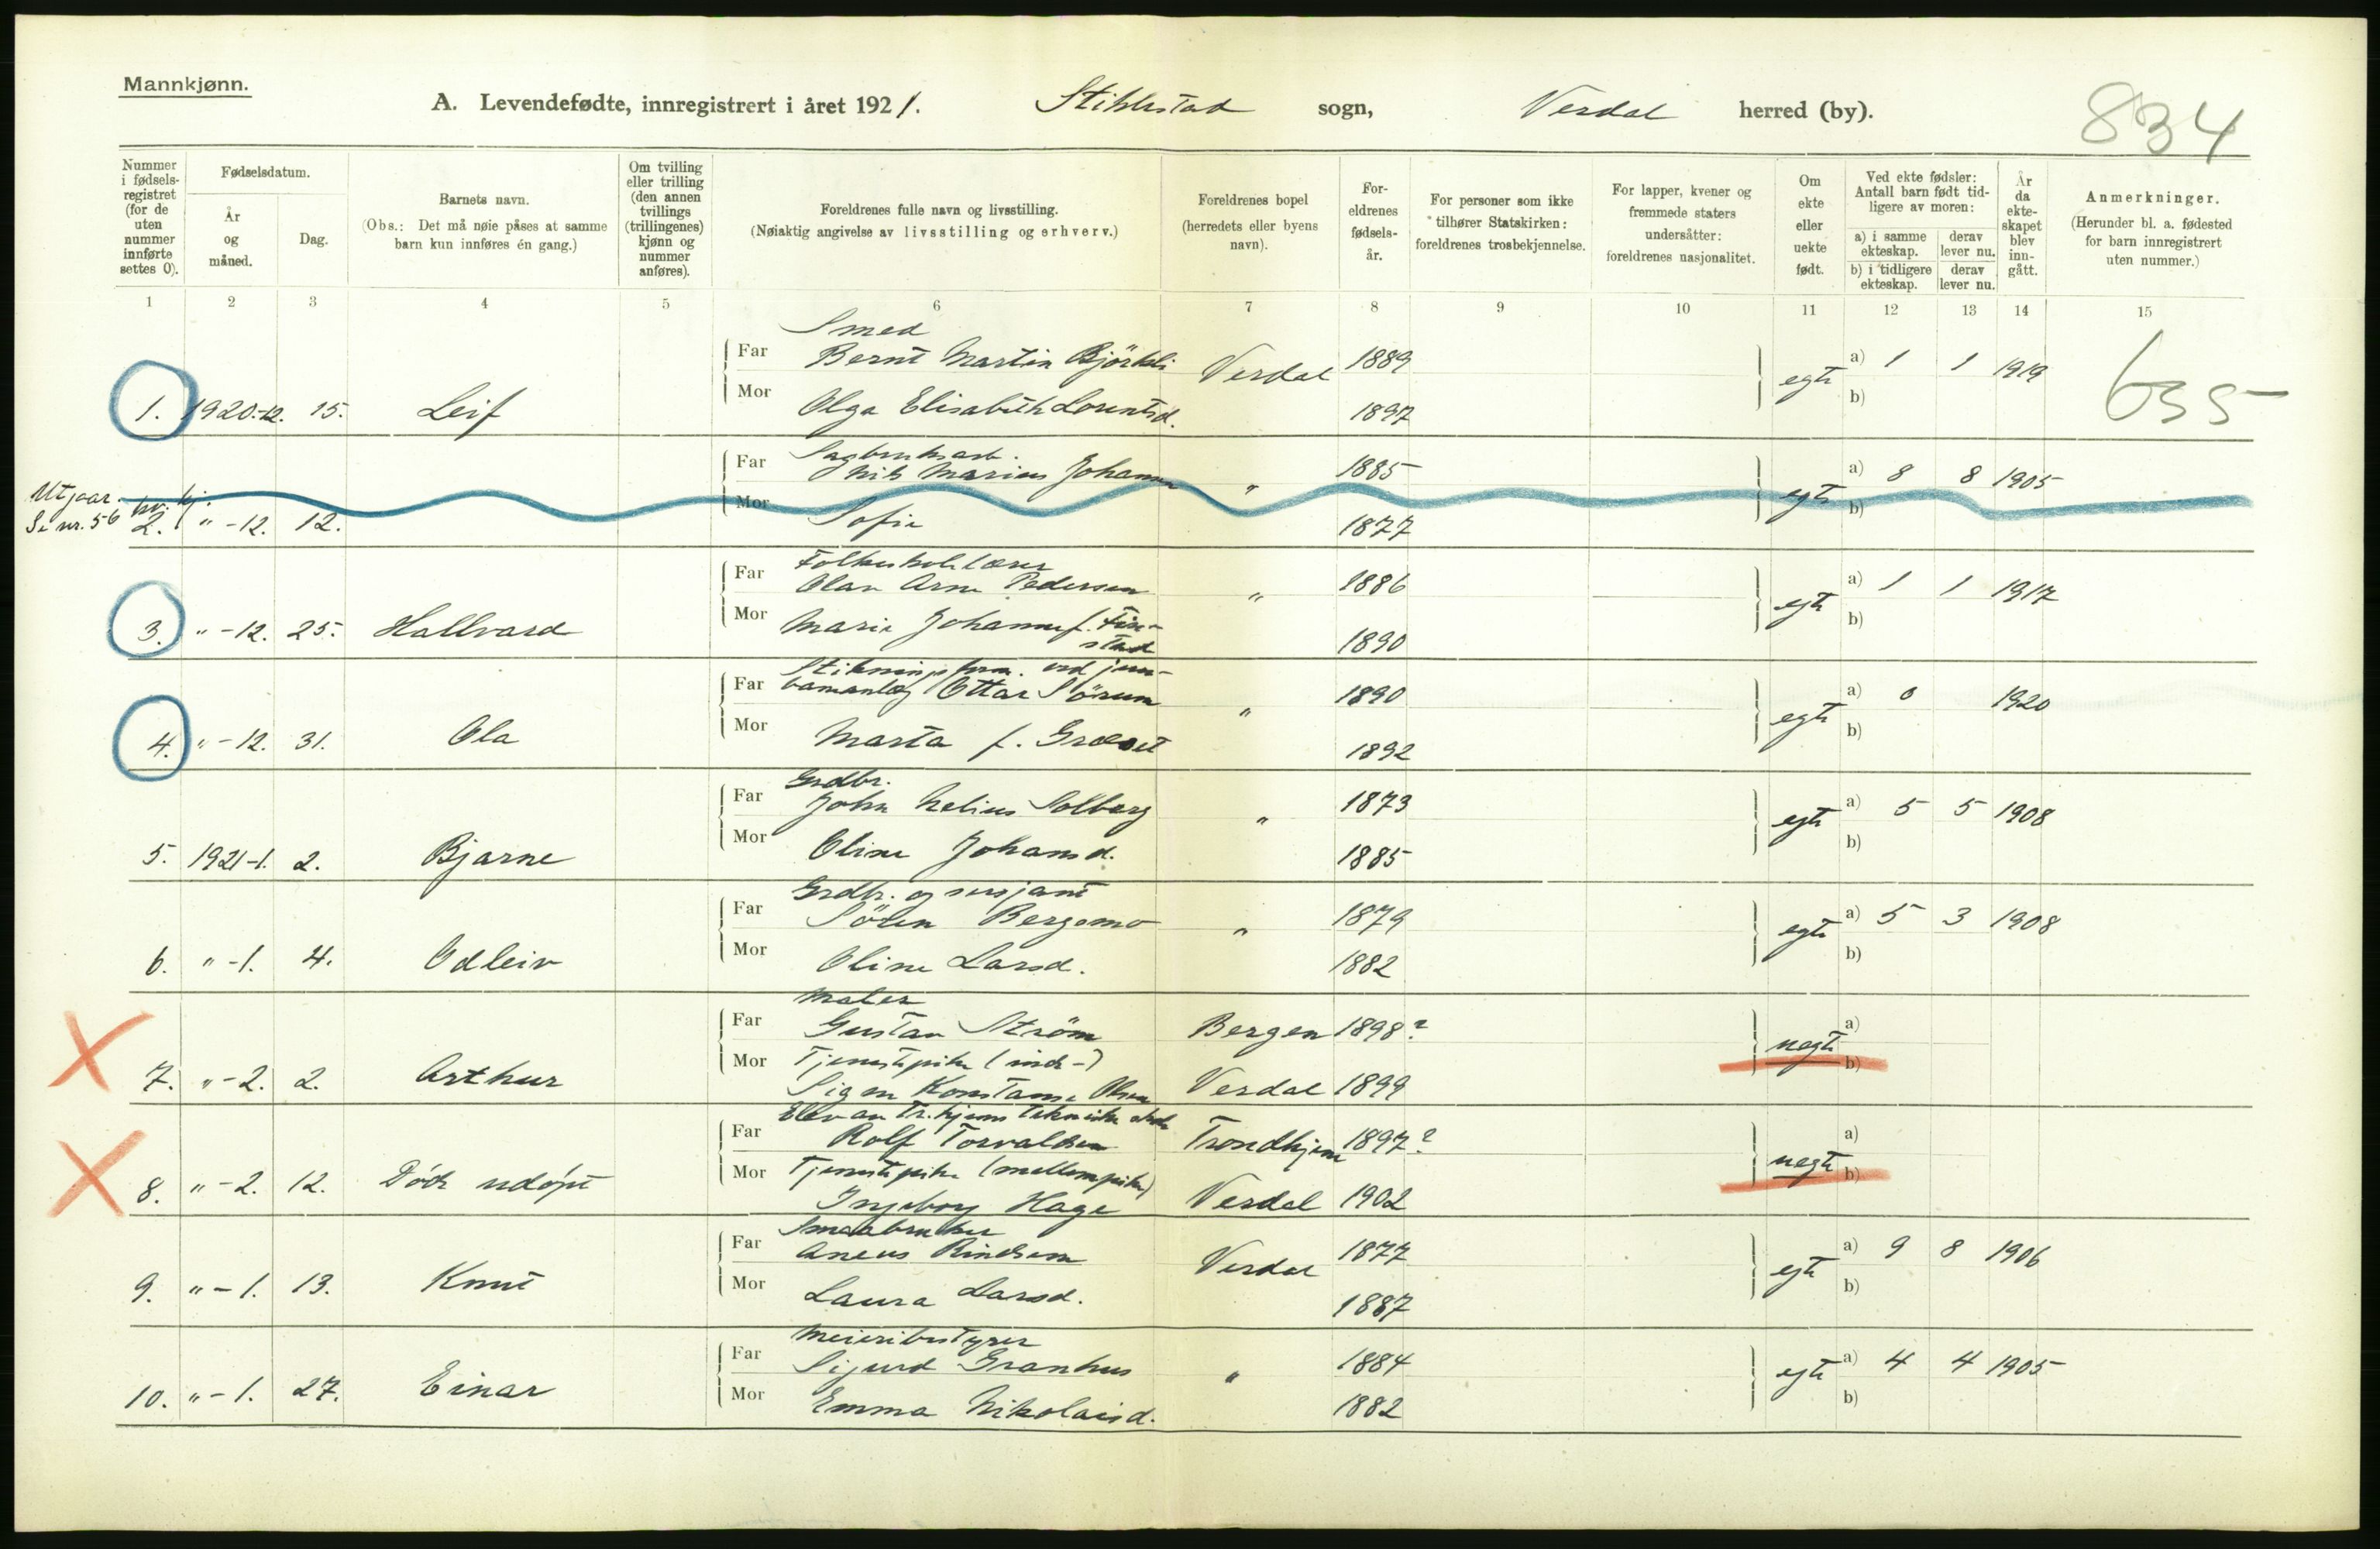 Mannkjønn.
A. Levendefødte, innregistrert i året 1921. Stiklestad sogn, Verdal herred (by).
834
Nummer i fødsels-registret (for de uten nummer innførte settes 0).
Fødselsdatum.
År og måned.
Dag.
Barnets navn.
(Obs.: Det må nøie påses at samme barn kun innføres én gang.)
Om tvilling eller trilling (den annen tvillings (trillingenes) kjønn og nummer anføres).
Foreldrenes fulle navn og livsstilling.
(Nøiaktig angivelse av livsstilling og erhverv.)
Foreldrenes bopel (herredets eller byens navn).
For-eldrenes fødsels-år.
For personer som ikke tilhører Statskirken: foreldrenes trosbekjennelse.
For lapper, kvener og fremmede staters undersåtter: foreldrenes nasjonalitet.
Om ekte eller uekte født.
Ved ekte fødsler: Antall barn født tid-ligere av moren:
a) i samme ekteskap. derav lever nu.
b) i tidligere ekteskap. derav lever nu.
År da ekte-skapet blev inn-gått.
Anmerkninger.
(Herunder bl. a. fødested for barn innregistrert uten nummer.)
1 2 3 4 5 6 7 8 9 10 11 12 13 14 15
Smed
Far Bernt Martin Björkli Verdal 1889 egte a) 1 1 1919
635
1. 1920.-12. 15. Leif Mor Olga Elisabeth Lorentsd. 1897 b)
Sagbruksarb.
Far Nils Marius Johansen " 1885 egte a) 8 8 1905
Utgaar. kv. kj.
Se nr. 56 2. " -12. 12. Mor Sofie 1877 b)
Folkeskolelærer
Far Olav Arne Pedersen " 1886 egte a) 1 1 1917
3. " -12. 25. Hallvard Mor Marie Johanne f. Fin-
stad 1890 b)
Stikningsform. ved jern-
Far baneanlæg Ottar Sörum " 1890 egte a) 0 1920
4. " -12. 31. Ola Mor Marta f. Græset 1892 b)
Grdbr.
Far John Nelius Solberg " 1873 egte a) 5 5 1908
5. 1921-1. 2. Bjarne Mor Oline Johansd. 1885 b)
Grdbr. og sersjant
Far Sören Bergsmo " 1879 egte a) 5 3 1908
6. " -1. 4. Odleiv Mor Oline Larsd. 1882 b)
Maler
Far Gustav Ström Bergen 1898? uegte a)
Mor Tjenestepike (inde-)
7. " -2. 2. Arthur Signe Konstanse Olsen Verdal 1899 b)
Elev av Tr.hjems tekniske skole
Far Rolf Torvaldsen Trondhjem 1897? uegte a)
Mor Tjenestepike (mellempike)
8. " -2. 12. Död udöpt Ingeborg Hage Verdal 1902 b)
Smaabruker
Far Aneus Rindsem Verdal 1877 egte a) 9 8 1906
9. " -1. 13. Knut Mor Laura Larsd. 1887 b)
Meieribestyrer
Far Sigurd Granhus " 1884 egte a) 4 4 1905
10. " -1. 27. Einar Mor Emma Nikolaisd. 1882 b)